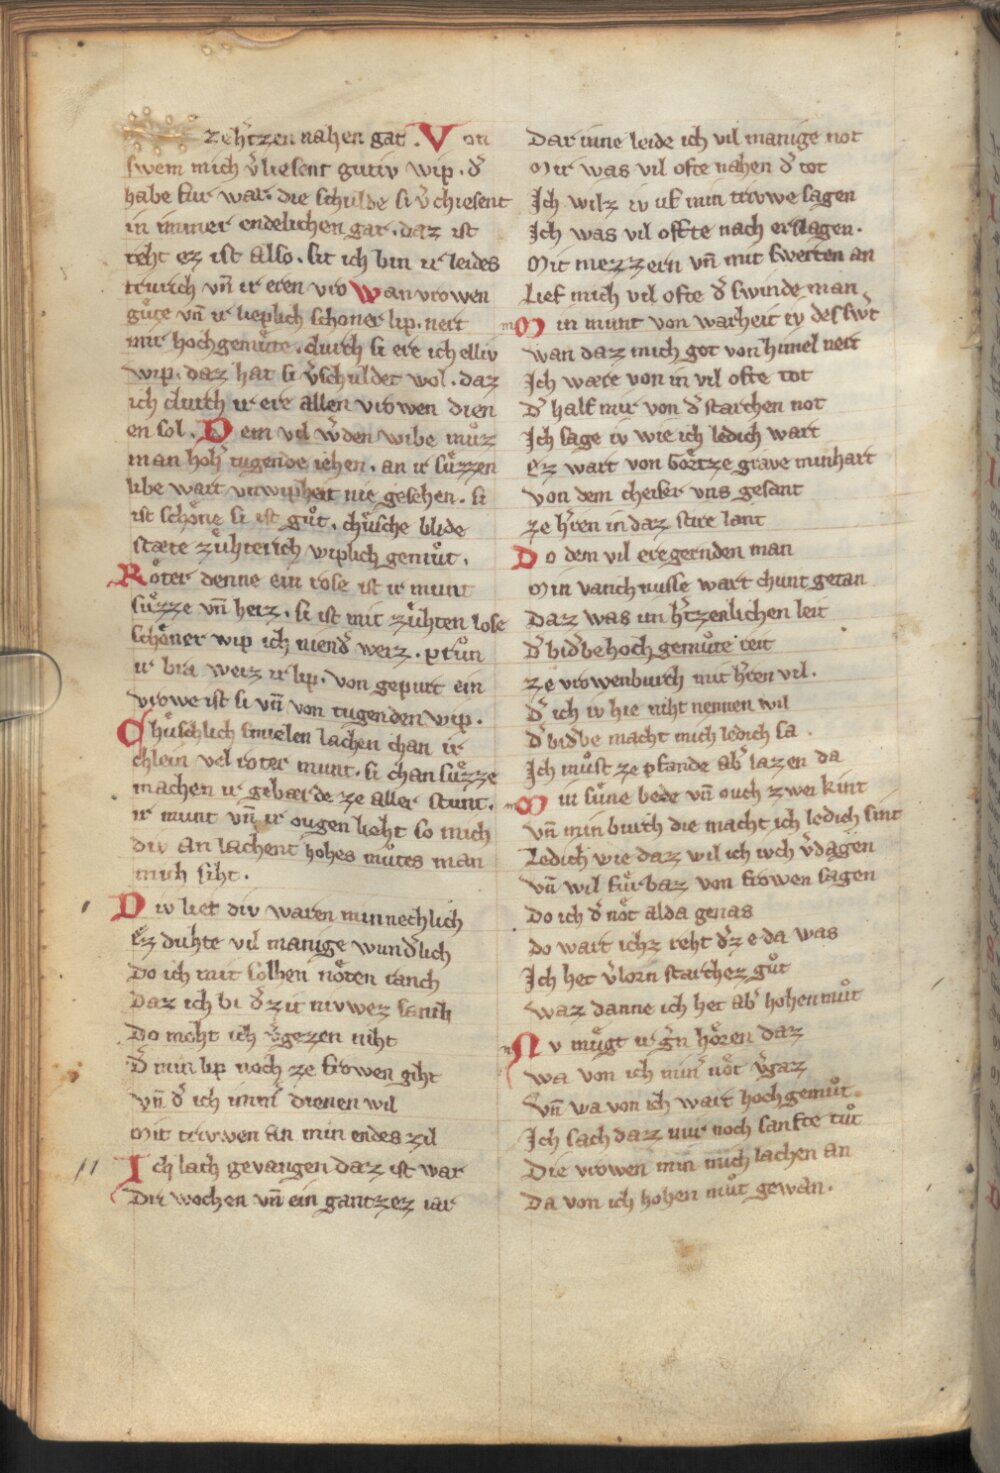 zehͬtzen nahen gat . Von
swem mich v̉liesent gutiv wip . d̉
habe fur war . die schulde si v̉chiesent
in immer endelichen gar . daz ist
reht ez ist also . sit ich bin ir leides
trurich vn̄ ir eren vro Wan vrowen
guͤte vn̄ ir lieplich schoner lip . nert
mir hochgemuͤte . durch si ere ich elliv
wip . daz hat si v̉schuldet wol . daz
ich durch ir ere allen vrowen dien
en sol . Dem vil w̉den wibe muͦz
man hoh̉ tugende iehen . an ir suͤzzen
libe wart vnwipheit nie gesehen . si
ist schoͤne si ist guͦt . chuͤsche blide
stæte zuͤhterich wiplich gemuͦt .
Roͤter denne ein rose ist ir munt
suͤzze vn̄ heiz . si ist mit zuͤhten lose
schoͤner wip ich niend̉ weiz . prun
ir bra weiz ir lip . von gepurt ein
vrowe ist si vn̄ von tugenden wip .
Chuͤschlich smielen lachen chan ir
chlein vel roter munt . si chan suͤzze
machen ir gebærde ze aller stunt .
ir munt vn̄ ir ougen lieht so mich
div an lachent hohes muͦtes man
mich siht .
Div liet div waren minnechlich
Ez duhte vil manige wund̉lich
Do ich mit solhen noͤten ranch
Daz ich bi d̉ zit nivwez sanch
Do moht ich v̉gezen niht
D̉ min lip noch ze frowen giht
Vn̄ d̉ ich imm̉ dienen wil
Mit triwen an min endes zil
Ich lach gevangen daz ist war
Dri wochen vn̄ ein gantzez iar
Dar inne leide ich vil manige not
Mir was vil ofte nahen d̉ tot
Ich wilz iv uf min trivwe sagen
Ich was vil offte nach erslagen .
Mit mezzern vn̄ mit swerten an
Lief mich vil ofte d̉ swinde man
Min munt von warheit iv des sw̉t
wan daz mich got von himel nert
Ich wære von in vil ofte tot
D̉ half mir von d̉ starchen not
Ich sage iv wie ich ledich wart
Ez wart von Goͤrtze grave minhart
von dem cheiser vns gesant
ze h̉ren in daz stire lant
Do dem vil eregernden man
Min vanchnusse wart chunt getan
Daz was im h̉tzenlichen leit
D̉ bid̉be hoch gemuͦte reit
ze vrowenburch mit h̉ren vil .
D̉ ich iv hie niht nennen wil
D̉ bid̉be macht mich ledich sa .
Ich muͦst ze pfande ab̉ lazen da
Min suͤne bede vn̄ ouch zwei kint
Vn̄ min burch die macht ich ledich sint
Ledich wie daz wil ich ivch v̉dagen
Vn̄ wil fuͤrbaz von frowen sagen
Do ich d̉ noͤt alda genas
Do wart ichz reht d̉z e da was
Ich het v̉lorn starchez guͦt
waz danne ich het ab̉ hohen muͦt
Nv muͤgt ir g̉n hoͤren daz
wa von ich min̉ noͤt v̉gaz
Vn̄ wa von ich wart hochgemuͦt
Ich sach daz mir noch sanfte tuͦt
Die vrowen min mich lachen an
Da von ich hohen muͦt gewan .